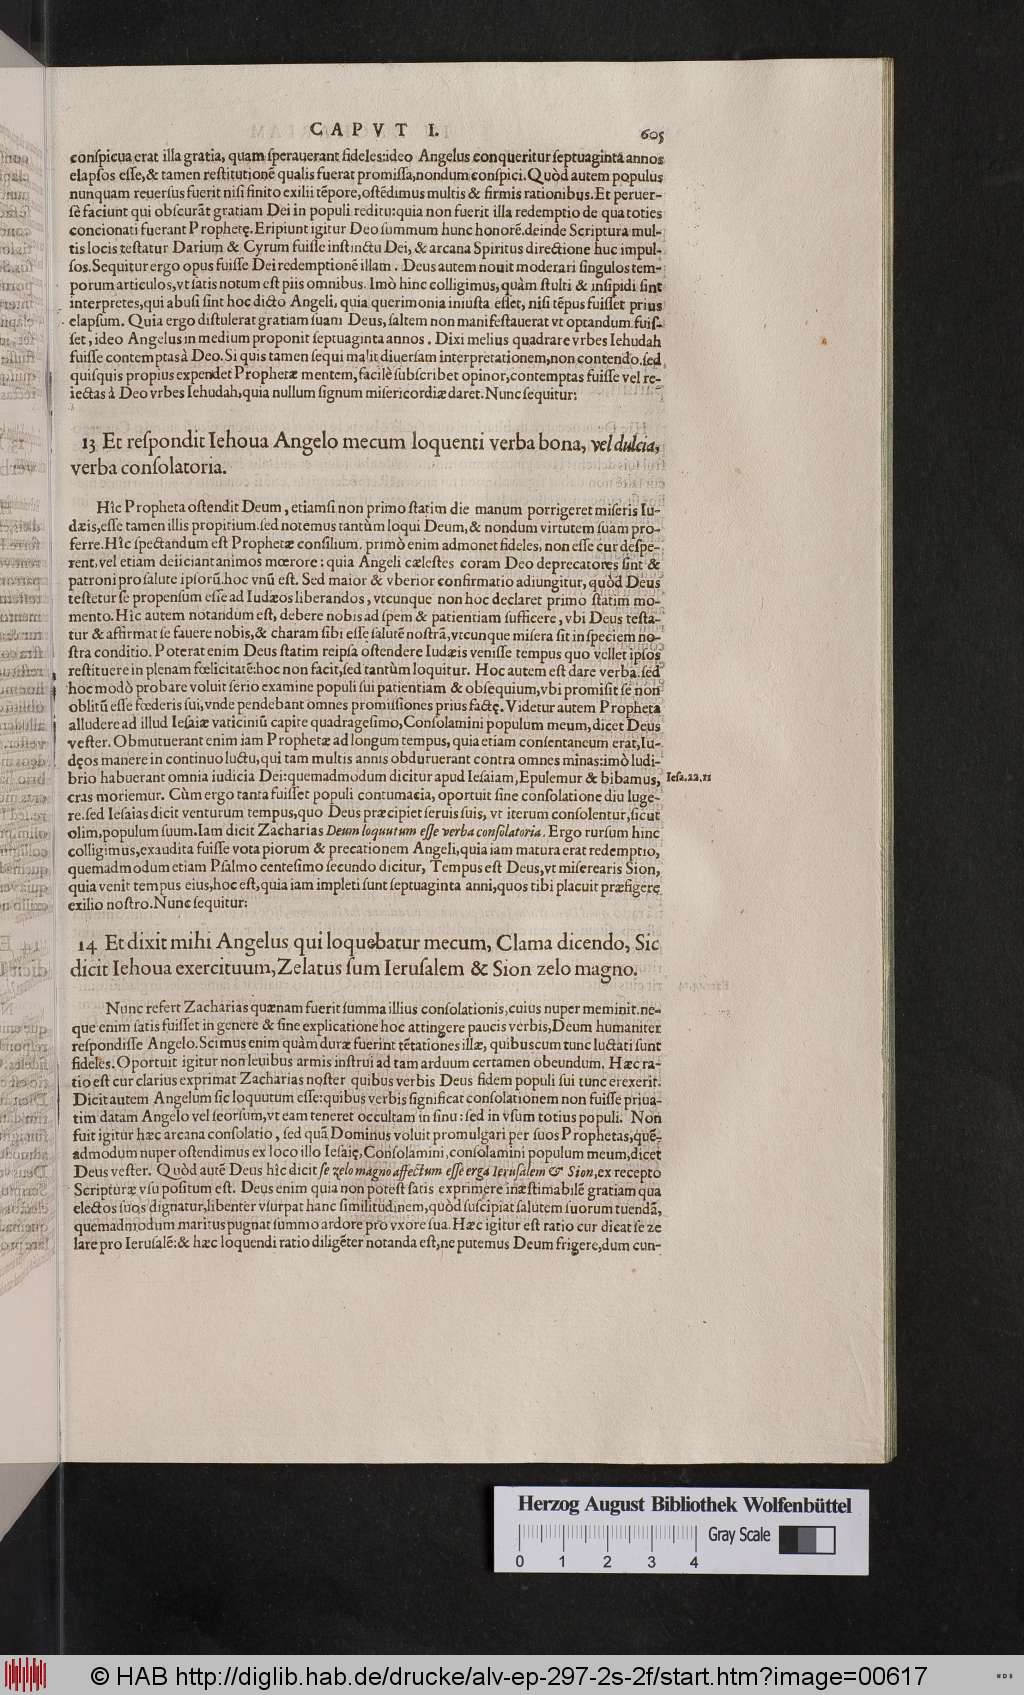 CAPVT I. 605
conſpicua erat illa gratia, quam ſperauerant fideles:ideo Angelus conqueritur ſeptuaginta annos
elapſos eſſe,& tamen reſtitutionē qualis fuerat promiſſa,nondum conſpici. Quòd autem populus
nunquam reuerſus fuerit niſi finito exilii tēpore,oſtēdimus multis & firmis rationibus. Et peruer-
sè faciunt qui obſcurāt gratiam Dei in populi reditu:quia non fuerit illa redemptio de qua toties
concionati fuerant Prophetę. Eripiunt igitur Deo ſummum hunc honorē.deinde Scriptura mul-
tis locis teſtatur Darium & Cyrum fuiſſe inſtinctu Dei, & arcana Spiritus directione huc impul-
ſos. Sequitur ergo opus fuiſſe Dei redemptionē illam. Deus autem nouit moderari ſingulos tem-
porum articulos,vt ſatis notum eſt piis omnibus. Imò hinc colligimus,quàm ſtulti & inſipidi ſint
interpretes,qui abuſi ſint hoc dicto Angeli, quia querimonia iniuſta eſſet, niſi tēpus fuiſſet prius
elapſum. Quia ergo diſtulerat gratiam ſuam Deus, ſaltem non manifeſtauerat vt optandum fuiſ-
ſet, ideo Angelus in medium proponit ſeptuaginta annos. Dixi melius quadrare vrbes Iehudah
fuiſſe contemptas à Deo. Si quis tamen ſequi malit diuerſam interpretationem,non contendo.ſed
quiſquis propius expendet Prophetæ mentem, facilè ſubſcribet opinor,contemptas fuiſſe vel re-
iectas à Deo vrbes Iehudah,quia nullum ſignum miſericordiæ daret. Nunc ſequitur:
13 Et reſpondit Iehoua Angelo mecum loquenti verba bona, vel dulcia,
verba conſolatoria.
Hîc Propheta oſtendit Deum, etiamſi non primo ſtatim die manum porrigeret miſeris Iu-
dæis,eſſe tamen illis propitium.ſed notemus tantùm loqui Deum,& nondum virtutem ſuam pro-
ferre. Hîc ſpectandum eſt Prophetæ conſilium. primò enim admonet fideles, non eſſe cur deſpe-
rent,vel etiam deiiciant animos mœrore: quia Angeli cæleſtes coram Deo deprecatores ſint &
patroni pro ſalute ipſorū.hoc vnū eſt. Sed maior & vberior confirmatio adiungitur, quòd Deus
teſtetur ſe propenſum eſſe ad Iudæos liberandos, vtcunque non hoc declaret primo ſtatim mo-
mento. Hîc autem notandum eſt, debere nobis ad ſpem & patientiam ſufficere, vbi Deus teſta-
tur & affirmat ſe fauere nobis,& charam ſibi eſſe ſalutē noſtrā,vtcunque miſera ſit in ſpeciem no-
ſtra conditio. Poterat enim Deus ſtatim reipſa oſtendere Iudæis veniſſe tempus quo vellet ipſos
reſtituere in plenam fœlicitatē:hoc non facit,ſed tantùm loquitur. Hoc autem eſt dare verba.ſed
hoc modò probare voluit ſerio examine populi ſui patientiam & obſequium,vbi promiſit ſe non
oblitū eſſe fœderis ſui,vnde pendebant omnes promiſſiones prius factę. Videtur autem Propheta
alludere ad illud Ieſaiæ vaticiniū capite quadrageſimo,Conſolamini populum meum,dicet Deus
veſter. Obmutuerant enim iam Prophetæ ad longum tempus, quia etiam conſentaneum erat,Iu-
dęos manere in continuo luctu,qui tam multis annis obduruerant contra omnes minas:imò ludi-
brio habuerant omnia iudicia Dei:quemadmodum dicitur apud Ieſaiam,Epulemur & bibamus, Ieſa.22.13
cras moriemur. Cùm ergo tanta fuiſſet populi contumacia, oportuit ſine conſolatione diu luge-
re.ſed Ieſaias dicit venturum tempus,quo Deus præcipiet ſeruis ſuis, vt iterum conſolentur,ſicut
olim,populum ſuum. Iam dicit Zacharias Deum loquutum eſſe verba conſolatoria. Ergo rurſum hinc
colligimus,exaudita fuiſſe vota piorum & precationem Angeli,quia iam matura erat redemptio,
quemadmodum etiam Pſalmo centeſimo ſecundo dicitur, Tempus eſt Deus,vt miſerearis Sion,
quia venit tempus eius,hoc eſt,quia iam impleti ſunt ſeptuaginta anni,quos tibi placuit præfigere
exilio noſtro. Nunc ſequitur:
14 Et dixit mihi Angelus qui loquebatur mecum, Clama dicendo, Sic
dicit Iehoua exercituum, Zelatus ſum Ieruſalem & Sion zelo magno.
Nunc refert Zacharias quænam fuerit ſumma illius conſolationis,cuius nuper meminit.ne-
que enim ſatis fuiſſet in genere & ſine explicatione hoc attingere paucis verbis,Deum humaniter
reſpondiſſe Angelo. Scimus enim quàm duræ fuerint tētationes illæ, quibuscum tunc luctati ſunt
fideles. Oportuit igitur non leuibus armis inſtrui ad tam arduum certamen obeundum. Hæc ra-
tio eſt cur clarius exprimat Zacharias noſter quibus verbis Deus fidem populi ſui tunc erexerit.
Dicit autem Angelum ſic loquutum eſſe:quibus verbis ſignificat conſolationem non fuiſſe priua-
tim datam Angelo vel ſeorſum,vt eam teneret occultam in ſinu:ſed in vſum totius populi. Non
fuit igitur hæc arcana conſolatio, ſed quā Dominus voluit promulgari per ſuos Prophetas,quē-
admodum nuper oſtendimus ex loco illo Ieſaię,Conſolamini,conſolamini populum meum,dicet
Deus veſter. Quòd autē Deus hîc dicit ſe zelo magno affectum eſſe erga Ieruſalem & Sion,ex recepto
Scripturæ vſu poſitum eſt. Deus enim quia non poteſt ſatis exprimere inæſtimabilē gratiam qua
electos ſuos dignatur,libenter vſurpat hanc ſimilitudinem,quòd ſuſcipiat ſalutem ſuorum tuendā,
quemadmodum maritus pugnat ſummo ardore pro vxore ſua. Hæc igitur eſt ratio cur dicat ſe ze
lare pro Ieruſalē:& hæc loquendi ratio diligēter notanda eſt,ne putemus Deum frigere,dum cun-
Herzog August Bibliothek Wolfenbüttel
Gray Scale
0 1 2 3 4
© HAB http://diglib.hab.de/drucke/alv-ep-297-2s-2f/start.htm?image=00617